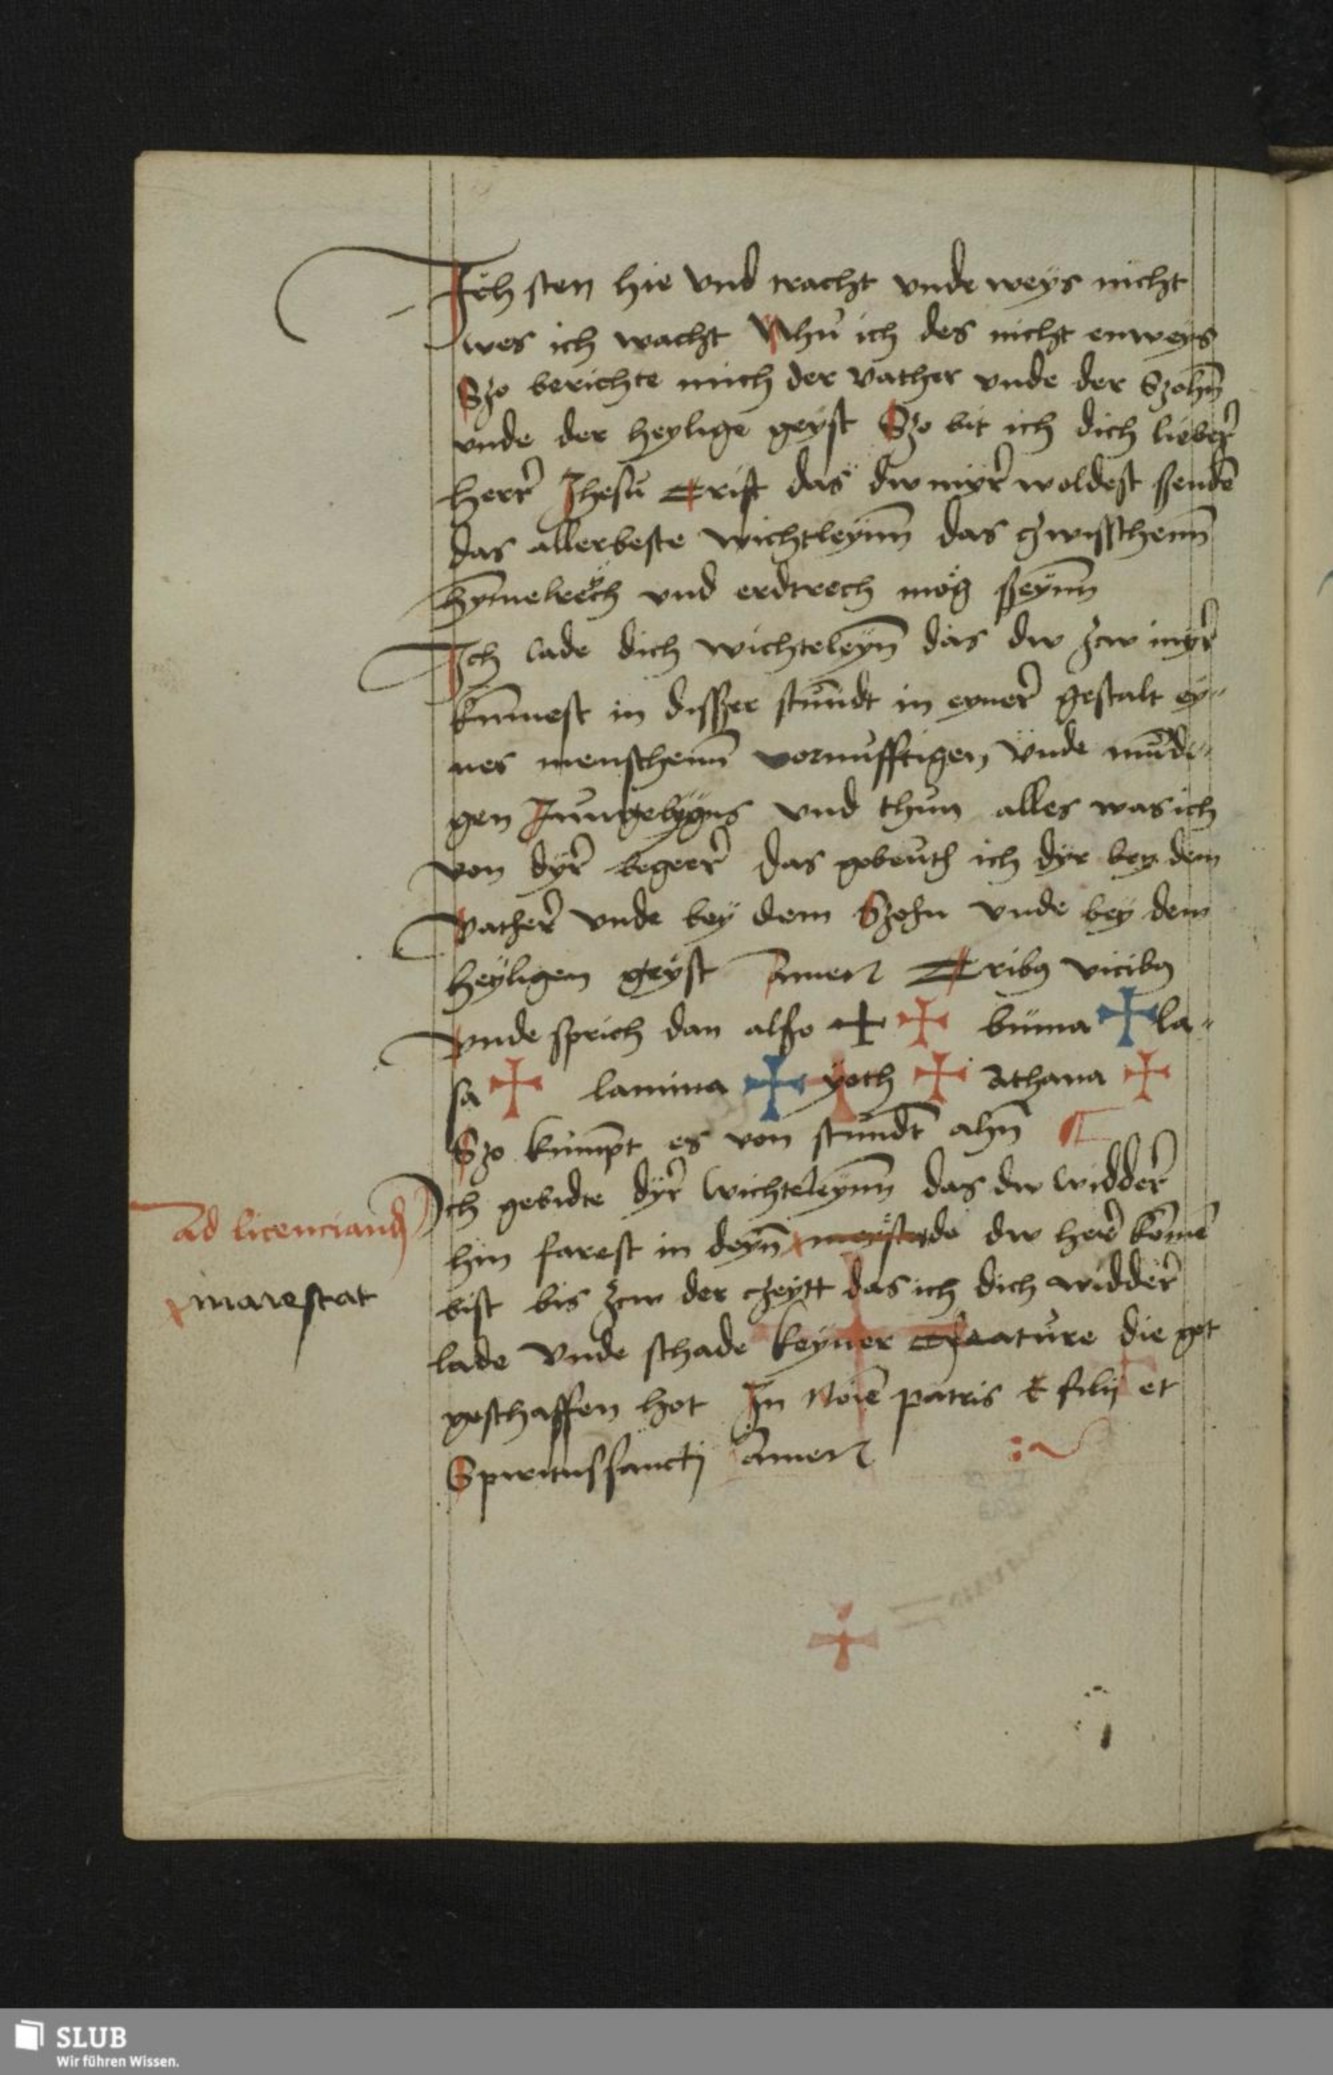 Ich sten hie vnd tracht vnde weys nicht
wes ich wacht Nhu ich des nicht enweys
Szo berichte mich der vather vnde der Szohn̄
vnde der heylige geyst Szo bit ich dich lieber
herr Jhesu Crist das dw myr woldest sendē
das allerbeste wichtleynn̄ das czwisschenn̄
hymelrech vnd erdtrech mög sseynn̄
Ich lade dich wichteleyn̄ das dw zcw myr
kummest in disszer stundt in eyner gestalt ey-
nes menschenn̄ vornufftigen vnde
gen vnd thun alles was ich
von dyr begeer das gebeuth ich dyr bey dem
Vather vnde bey dem Szohn vnde bey dem
heyligen geyst Amen Tribꝫ vicibꝫ
Vnde sprich dan alszo + + buma + la-
sa + lamina + yoth + Athana +
Szo kumpt es von stundt ahn̄
Ich gebidte dyr wichteleynn̄ das dw widder
hin farest in deyn̄ do dw here komē
bist bis zcw der czeytt das ich dich widder
lade Vnde schade keyner creature die got
geschaffen hot In Noīe patris & filij et
Spiritussanctj Amen
Ad licenciand
maiestat
SLUB
Wir führen Wissen.